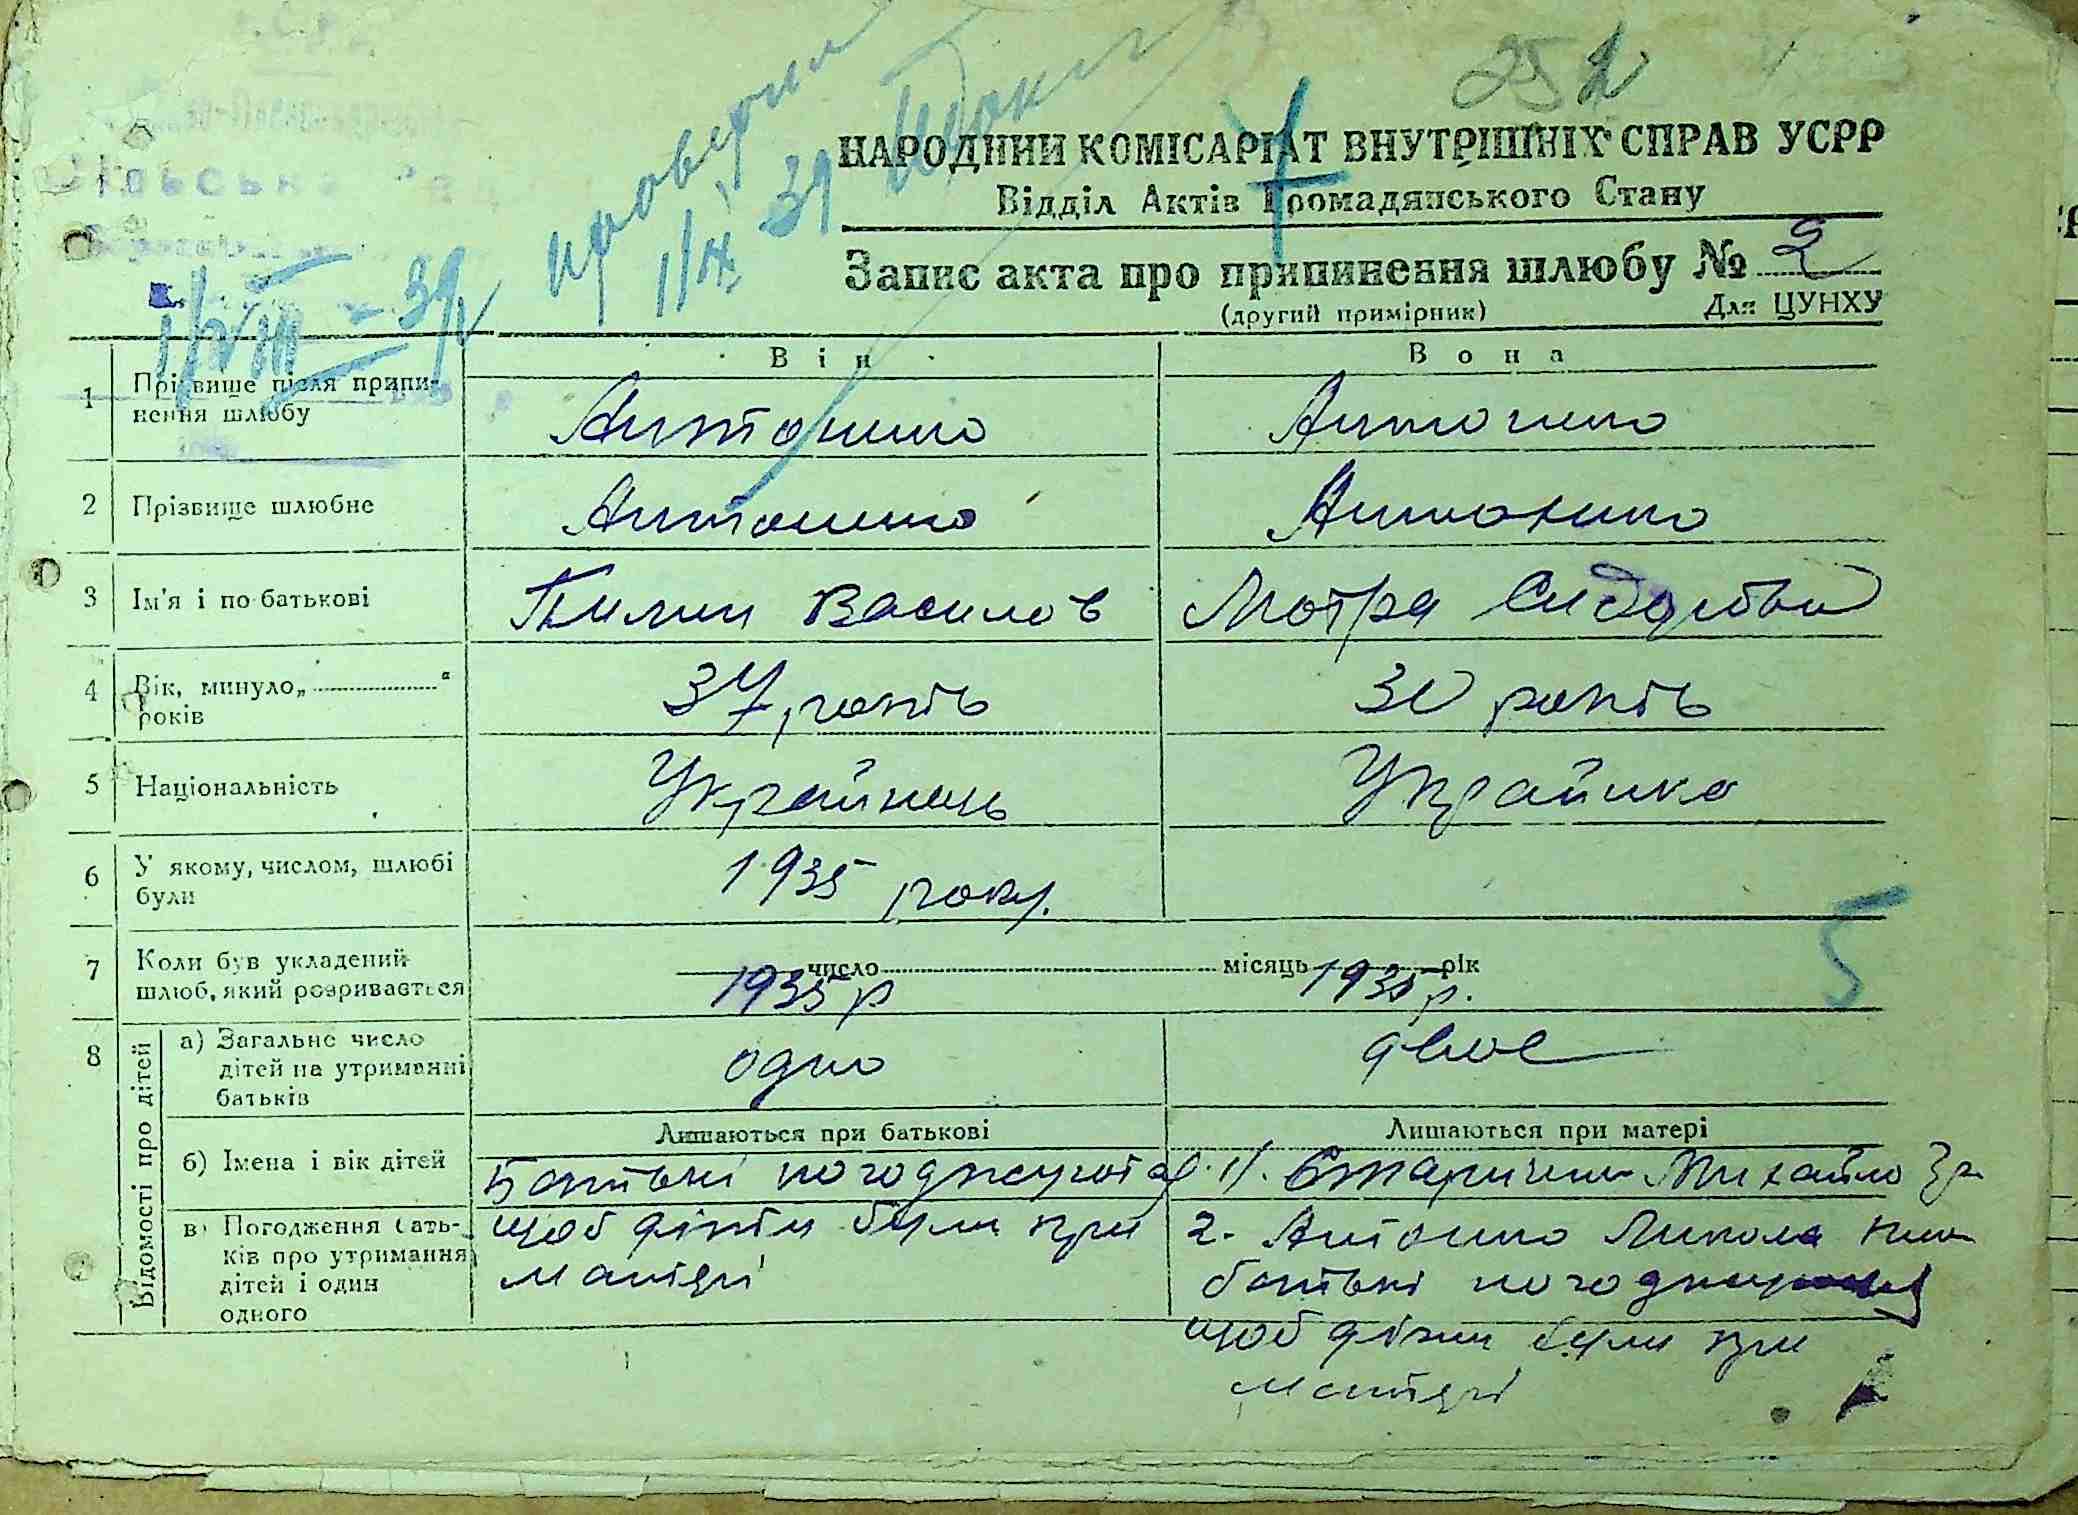 252
проверил
1/IX 39
НАРОДНИЙ КОМІСАРІАТ ВНУТРІШНІХ СПРАВ УСРР
Відділ Актів Громадянського Стану
Запис акта про припинення шлюбу № 2
(другий примірник) Для ЦУНХУ
1/VIII - 39
Він Вона
1 Прізвище після припинення шлюбу Антонино Антонино
2 Прізвище шлюбне Антонино Антонино
3 Ім'я і по-батькові Пилип Василов Мотра Сидорівна
4 Вік, минуло „ “ років 37 років 30 років
5 Національність Українець Українка
6 У якому, числом, шлюбі були 1935 року.
7 Коли був укладений шлюб, який розривається число місяць рік
1935 р 1935 р.
5
8 Відомості про дітей
а) Загальне число дітей на утриманні батьків одно двоє
Лишаються при батькові Лишаються при матері
б) Імена і вік дітей
в) Погодження батьків про утримання дітей і один одного
Батькі погоджуютця
щоб діти були при
матері
1). Михайло 3р
2. Антонино Микола
батькі погоджуютця
щоб діти були при
матері